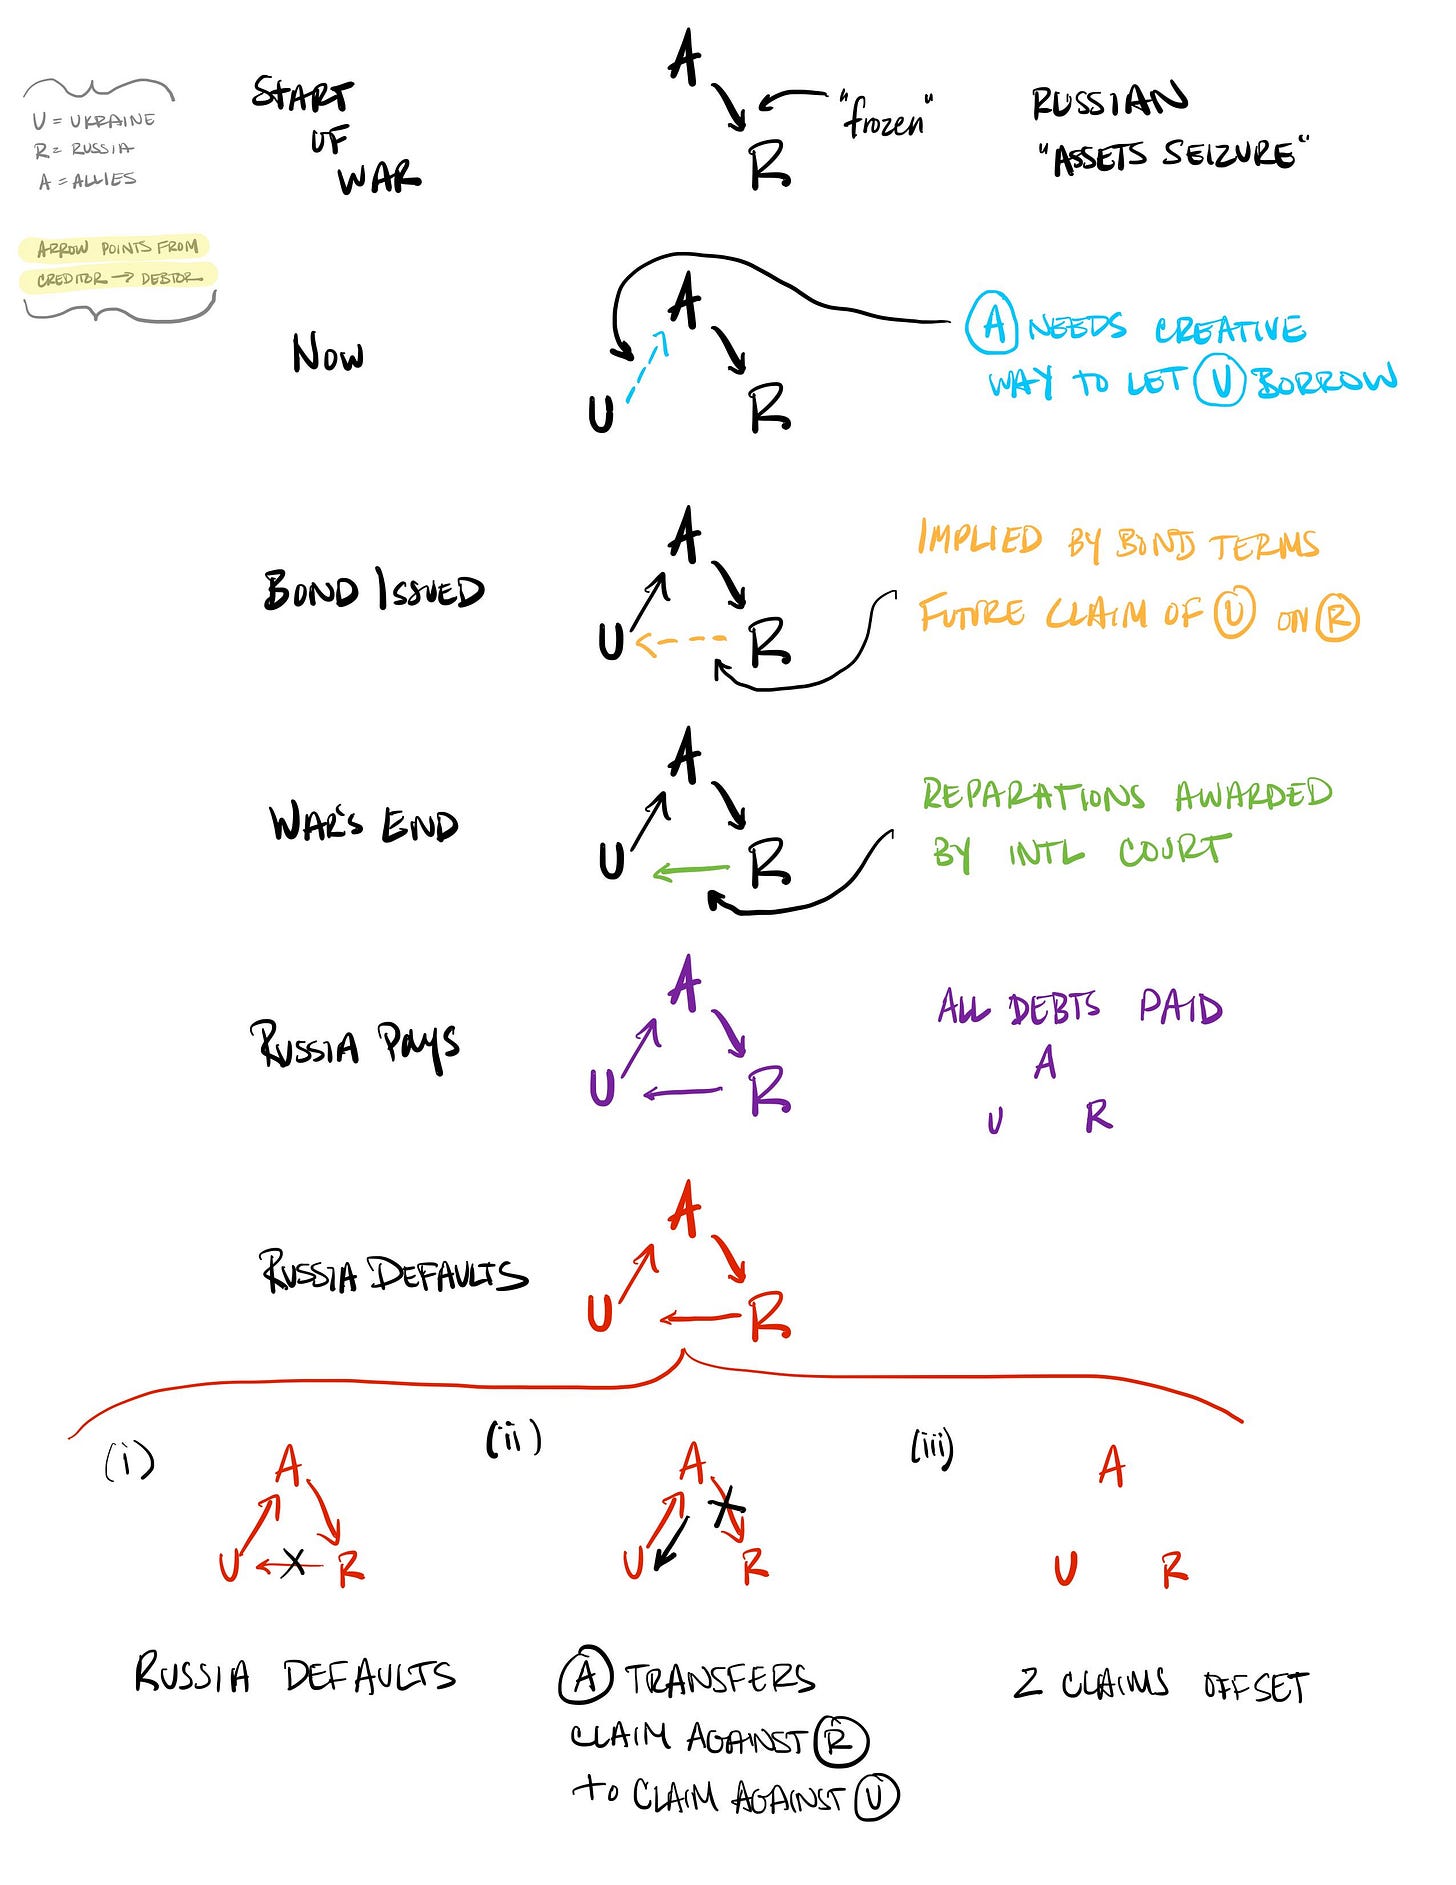 U = UKRAINE
R = RUSSIA
A = ALLIES
ARROW POINTS FROM
CREDITOR → DEBTOR
START
OF
WAR
A
"frozen"
R
RUSSIAN
"ASSETS SEIZURE"
NOW
A
U
R
A NEEDS CREATIVE
WAY TO LET U BORROW
BOND ISSUED
A
U
R
IMPLIED BY BOND TERMS
FUTURE CLAIM OF U ON R
WAR'S END
A
U
R
REPARATIONS AWARDED
BY INTL COURT
RUSSIA PAYS
A
U
R
ALL DEBTS PAID
A
U R
RUSSIA DEFAULTS
A
U
R
(i)
A
U
X
R
RUSSIA DEFAULTS
(ii)
A
X
U
R
A TRANSFERS
CLAIM AGAINST R
TO CLAIM AGAINST U
(iii)
A
U R
2 CLAIMS OFFSET